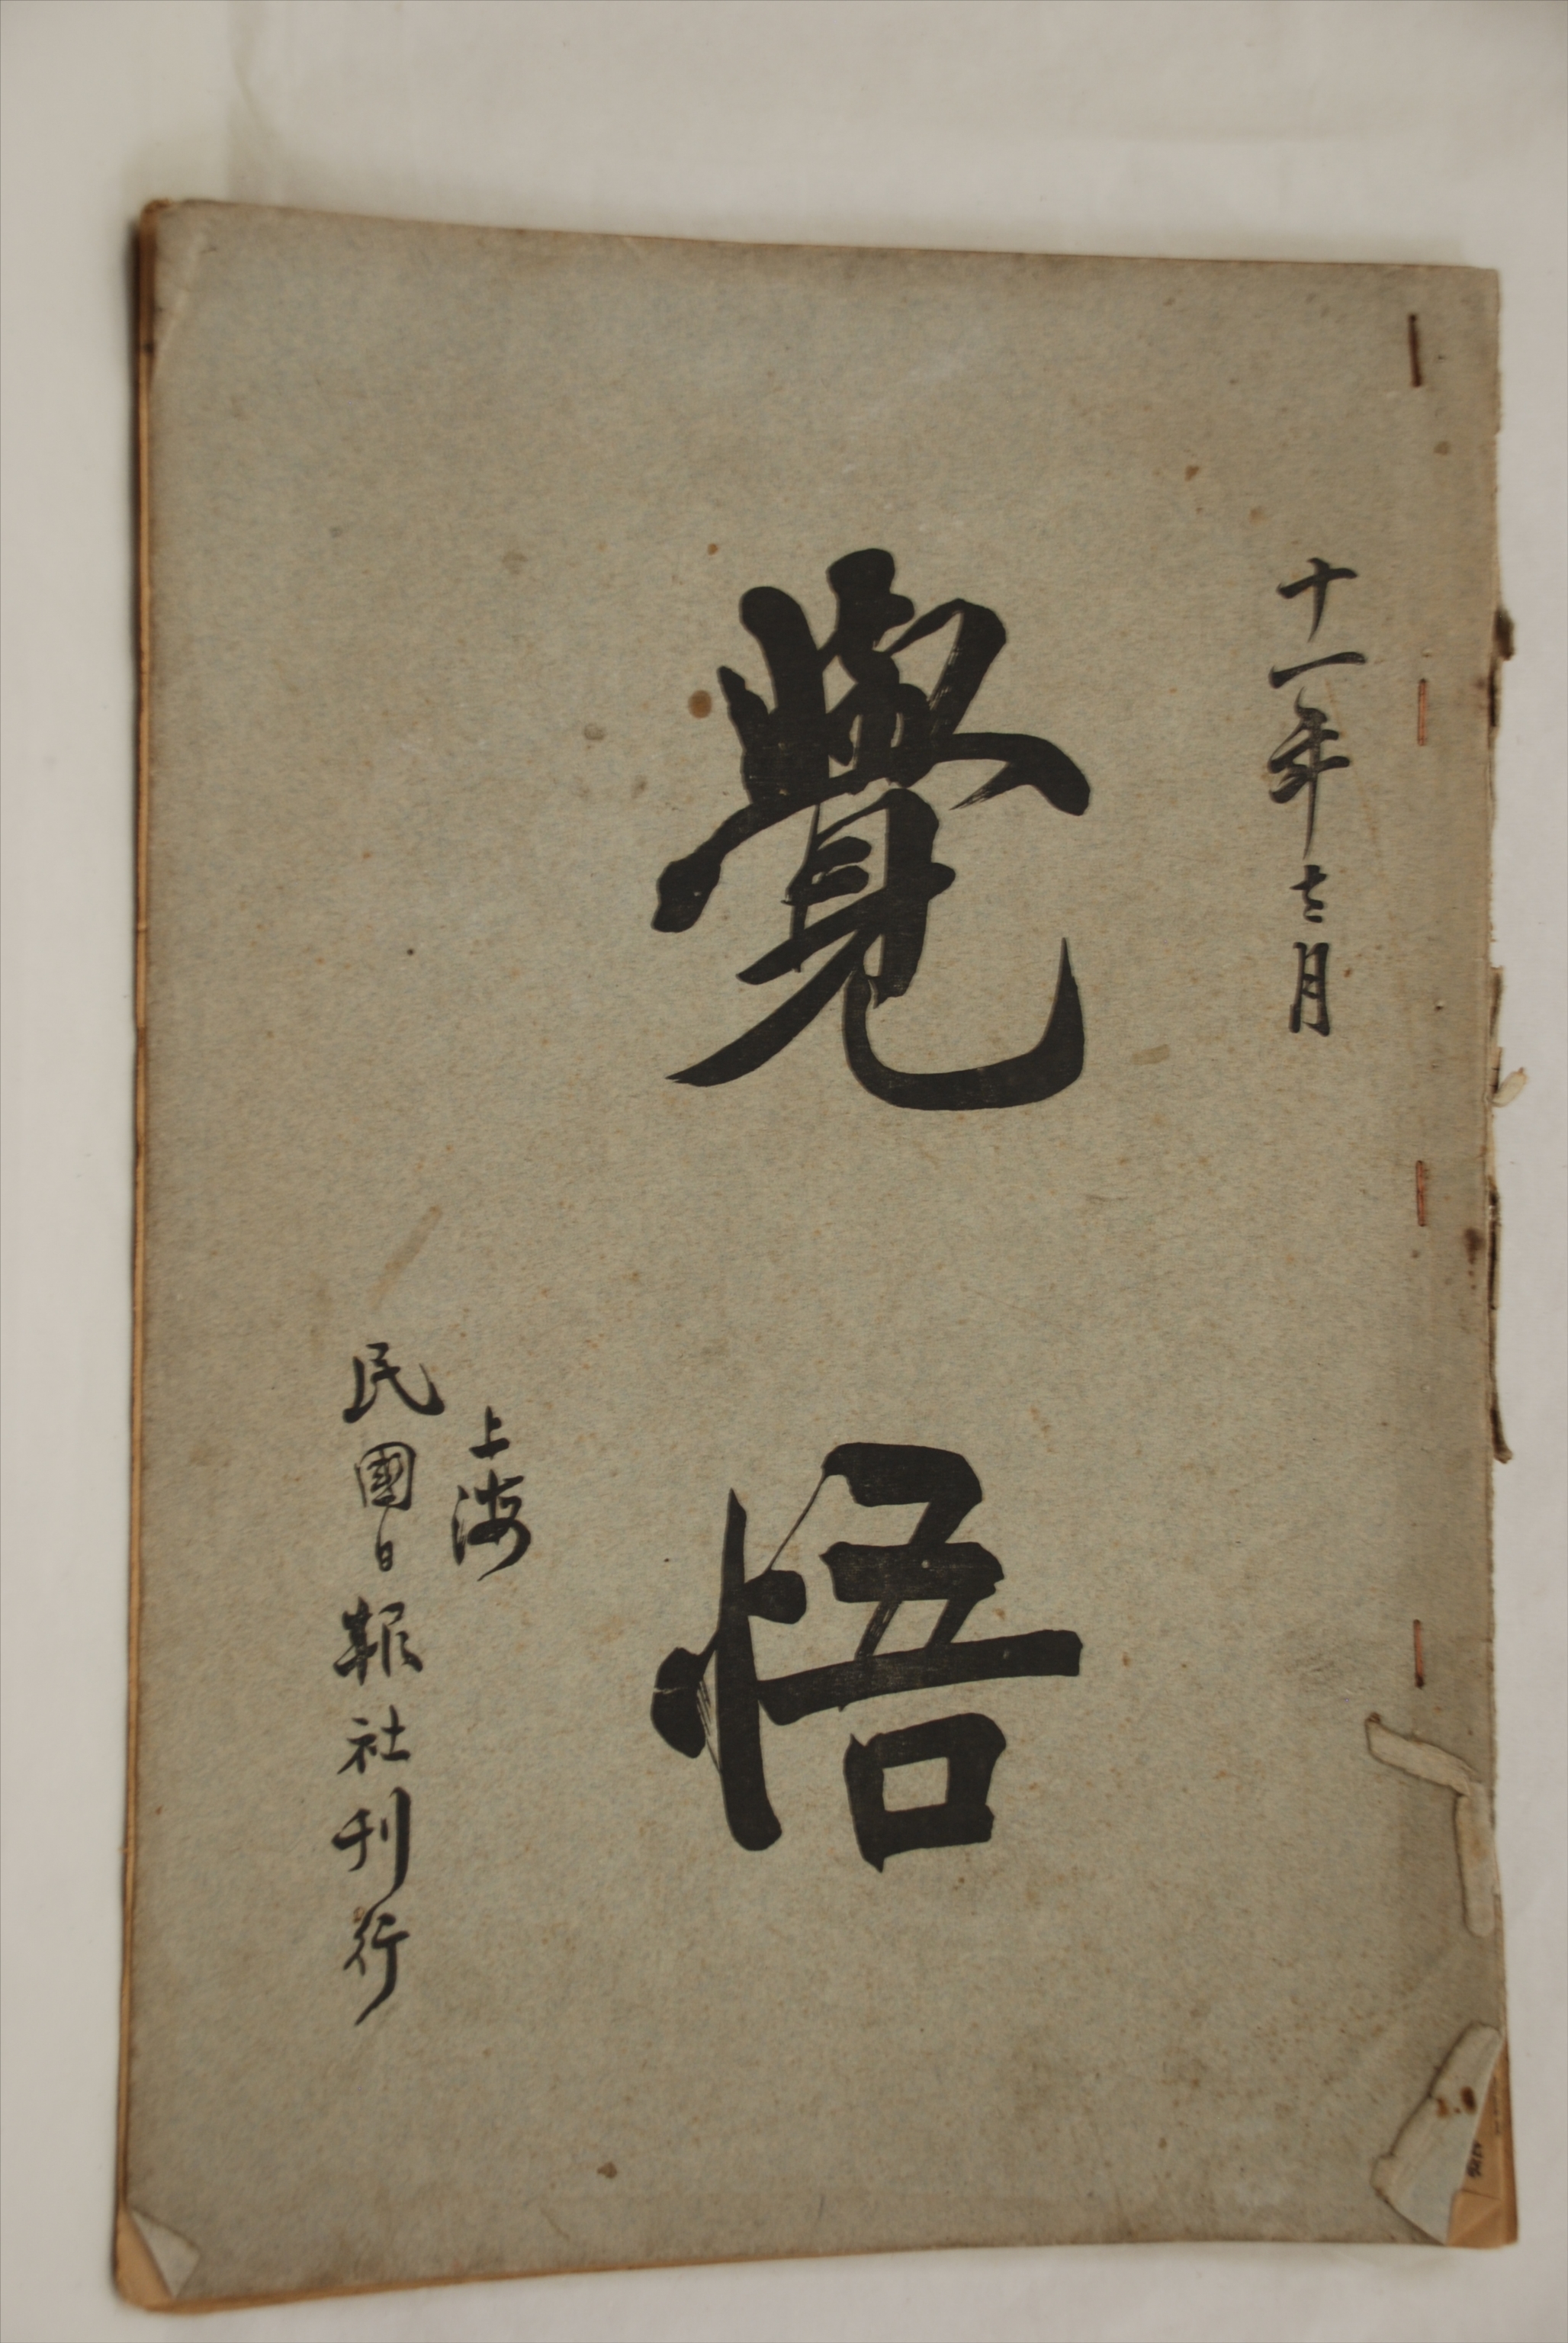 十一年十二月
覺悟
上海
民國日報社刊行